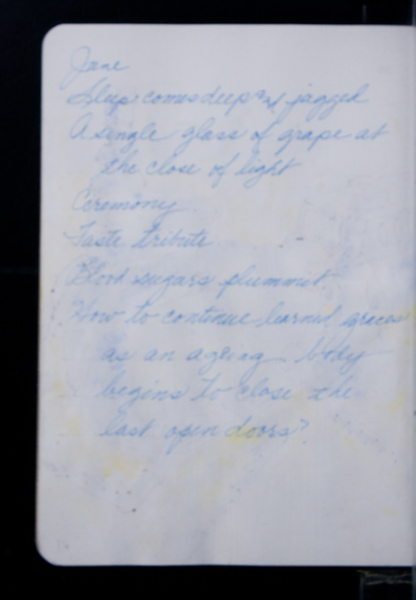 Jane
Sleep comes deep and jagged
A single glass of grape at
the close of light
Ceremony
Taste tribute
Blood sugars plummit
How to continue learned graces
as an ageing body
begins to close the
last open doors?